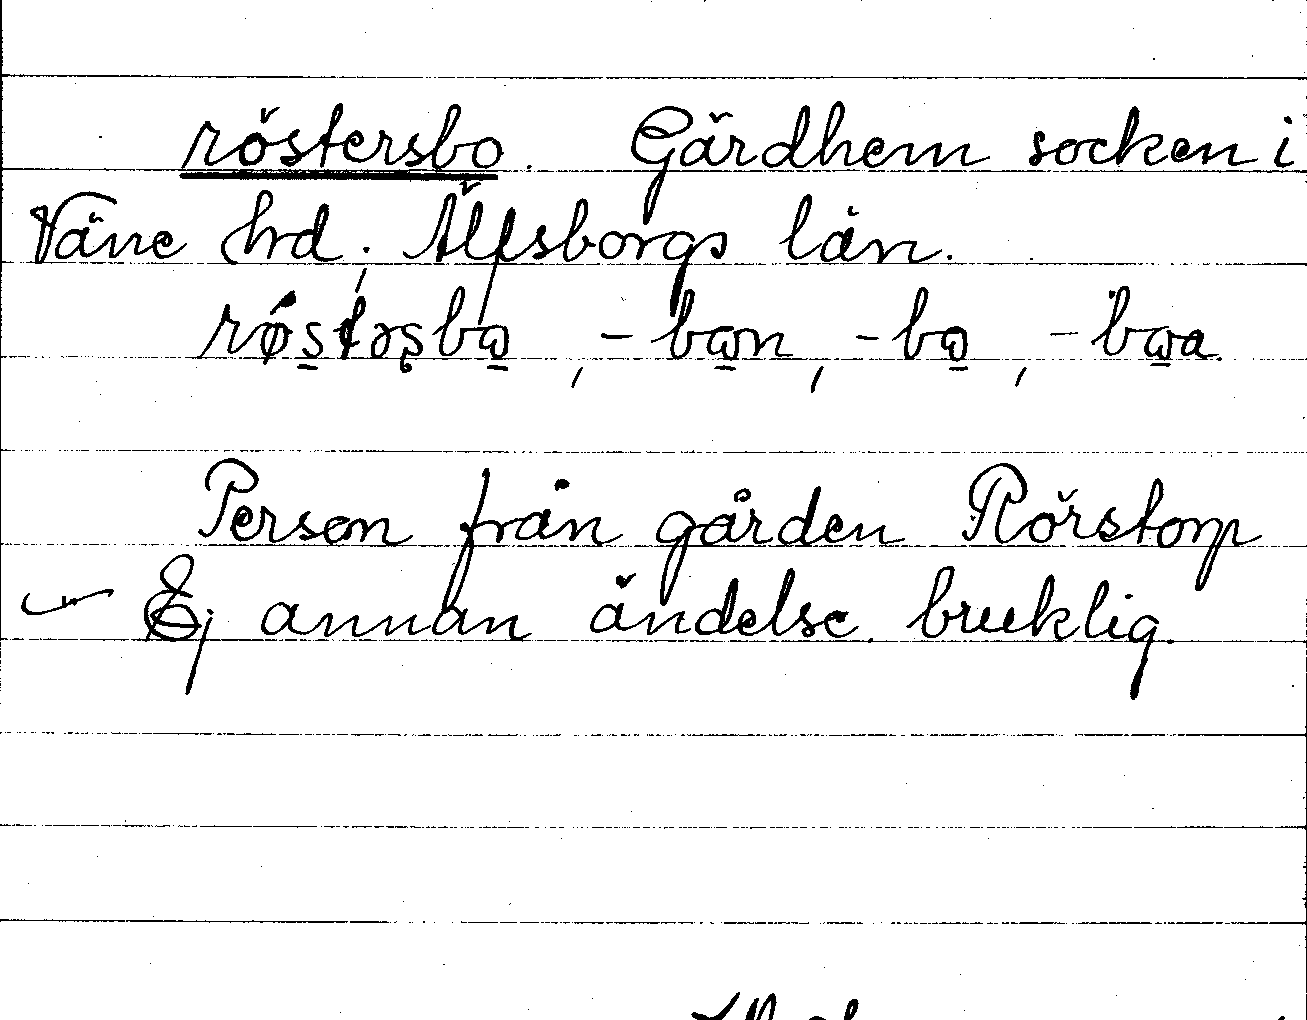 röstersbo. Gärdhem socken i
Väne hrd, Älfsborgs län.
rǿs̱təʂbɷ̱, -bɷ̱n, -bɷ̱, -bɷ̱a.
Person från gården Rörstorp
Ej annan ändelse bruklig.